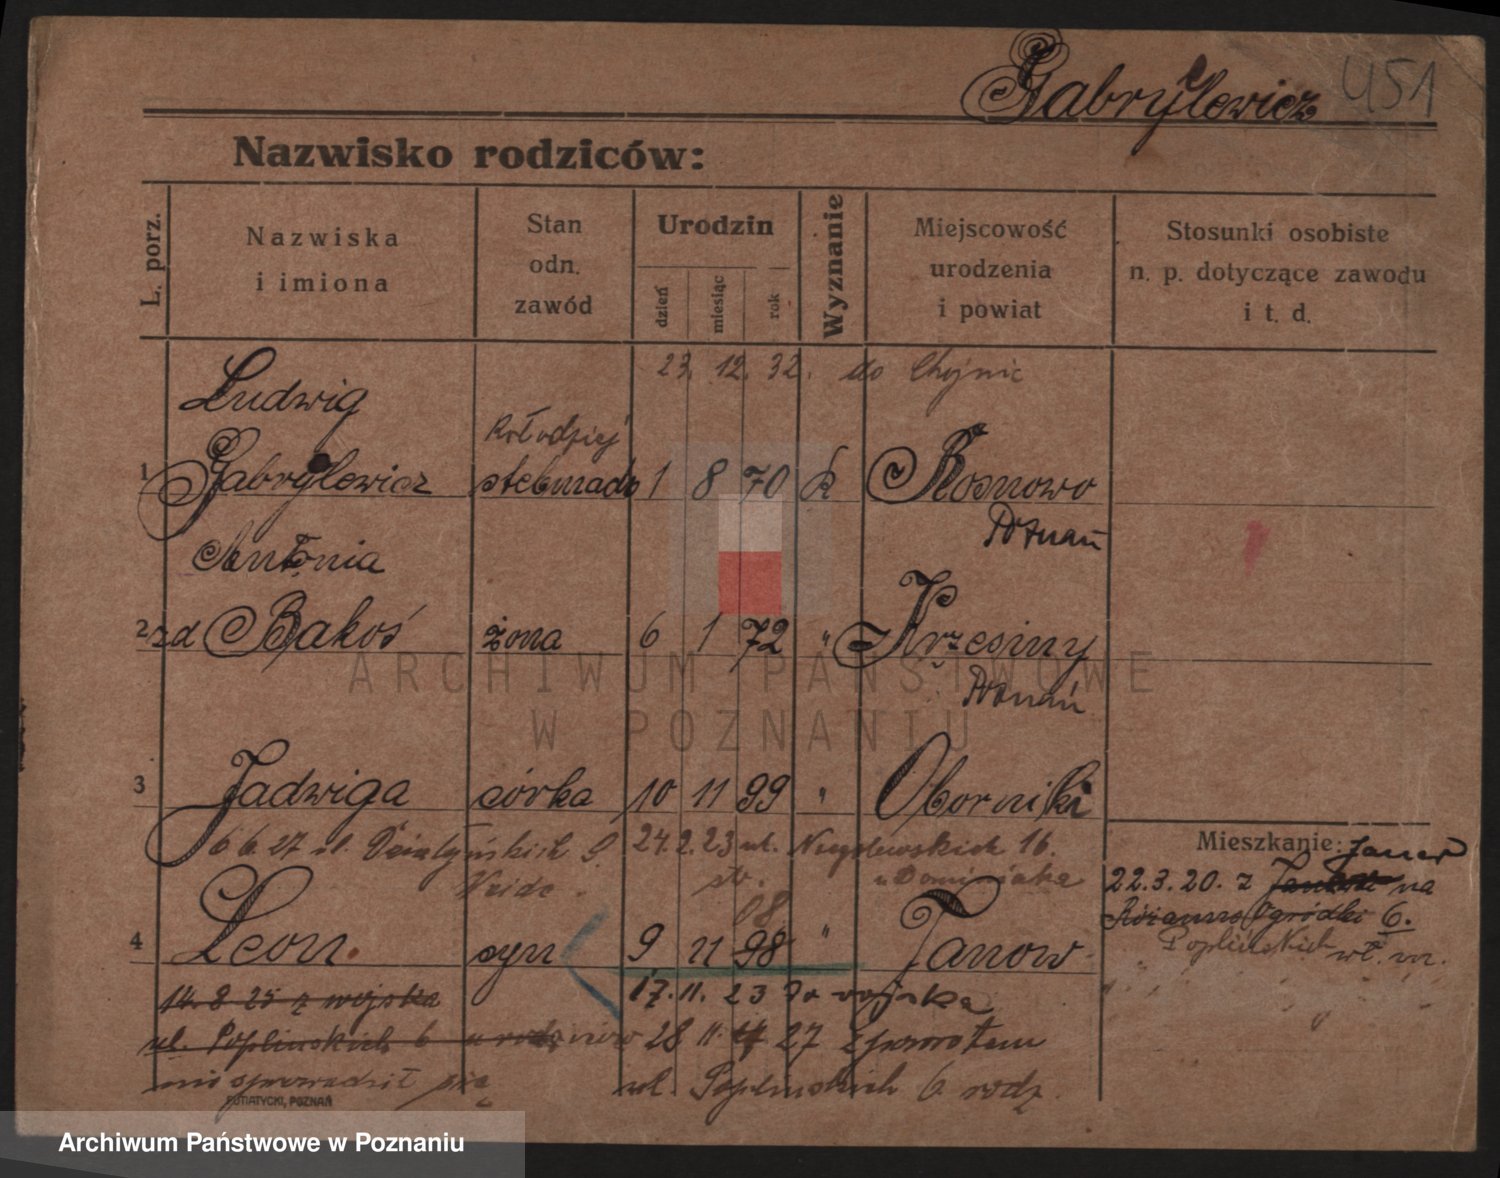 Gabrylewicz 451
Nazwisko rodziców:
L. porz.
Nazwiska
i imiona
Stan
odn.
zawód
Urodzin
dzień
miesiąc
rok
Wyznanie
Miejscowość
urodzenia
i powiat
Stosunki osobiste
n. p. dotyczące zawodu
i t. d.
23. 12. 32. do Chojnic
Ludwig
kołodziej
1 Gabrylewicz 1 8 70 k Rosnowo
Poznań
Antonia
2 zd Bakoś żona 6 1 72 " Krzesiny
Poznań
ARCHIWUM PAŃSTWOWE
W POZNANIU
3 Jadwiga córka 10 11 99 " Oborniki
6 6 27 ul. Działyńskich 9. 24.2.23 ul. 16.
Mieszkanie: Janow
22.3.20. z na
Ogródki 6.
Poplińskich
08
4 Leon. syn 9 11 98 " Janow
14. 8 25 z wojska 17. 11. 23 do wojska
ul. Poplinskich 6 28 11. 27 z powrotem
nie sprowadził się ul. Poplinskich 6 rodz.
PUTIATYCKI, POZNAŃ
Archiwum Państwowe w Poznaniu